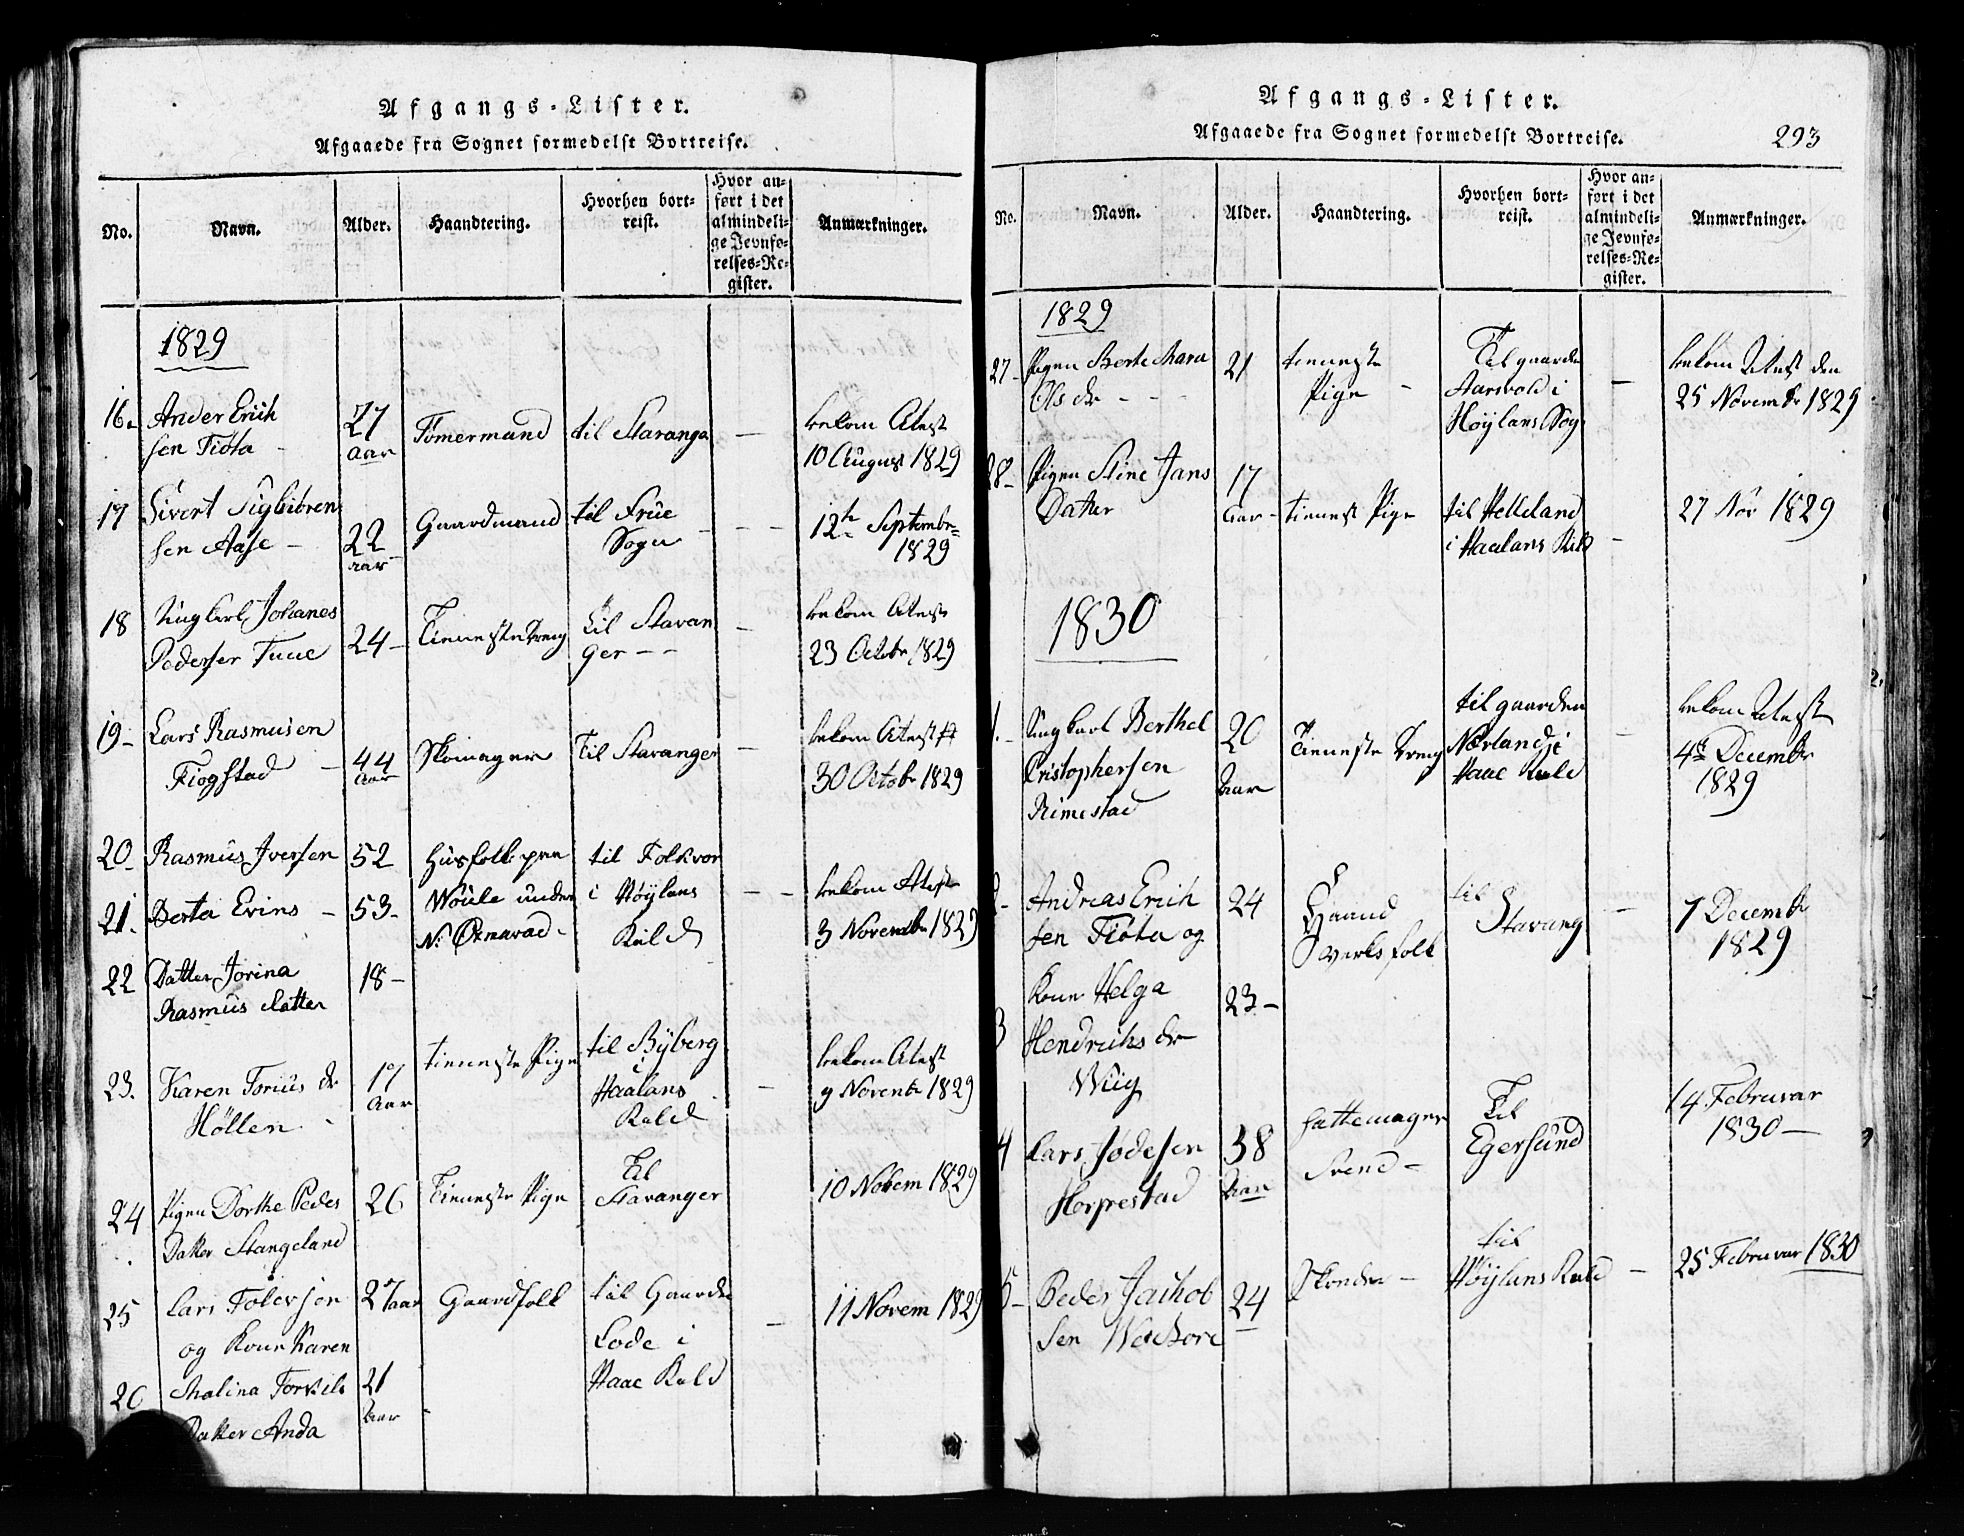 Afgangs-Lister.
Afgaaede fra Sognet formedelst Bortreise.
No.
Navn.
Alder.
Haandtering.
Hvorhen bort-
reist.
Hvor an-
ført i det
almindeli-
ge Jevnfø-
relses-Re-
gister.
Anmærkninger.
1829
16
Ander Erich
sen Tiøta
27
aar
Tømermand
til Stavange
—
bekom Atest
10 August 1829
17
Sivert Sigbiören
sen Aase —
22
aar
Gaardmand
til Frue
Sogn
— —
12te Septembr
1829
18
Ung karl Johanes
Pedersen Tuue
24 —
Tieneste dreng
til Stavan
ger — —
—
bekom Atest
23 Octobr 1829
19 —
Lars Rasmusen
Fiogstad —
44
aar
Skomager
Til Stavanger
—
bekom Atest
30 Octobr 1829
20
Rasmus Iversen
52
Husfolk paa
til Folkvor
21.
Berta Evins —
53 —
Woule under
i Höylans
— —
bekom Atest
N: Ormarad —
Kald
3 Novembr 1829
22
Datter Jorina
Rasmus datter
18 —
23.
Karen Torius dr
Höllen
17
aar
tieneste Pige
til Byberg
i
Haalans
Kald
—
bekom Atest
9 Novembr 1829
24
Pigen Dorthe Peders
Datter Stangeland
26
Tieneste Pige
til
Stavanger
10 Novem 1829
25
Lars Tolersen
og Kone Karen
27 aar
Gaardfolk
til Gaarden
Lode i
Haae Kald
—
11 Novem 1829
26
Malina Torkils
Datter Anda
21
aar
Afgangs-Lister.
Afgaaede fra Sognet formedelst Bortreise.
293
No.
Navn.
Alder.
Haandtering.
Hvorhen bort-
reist.
Hvor an-
ført i det
almindeli-
ge Jevnfø-
relses-Re-
gister.
Anmærkninger.
1829
27 —
Pigen Berte Mara
Ols dr — —
21
tieneste
Pige —
Til gaarden
Aarsvold i
Höylans Sog
—
bekom Atest den
25 Novembr 1829
28 —
Pigen Stine Jans
Datter
17
aar —
tienest Pige
til Helleland
i Haalans Kald
—
27 Nov 1829
1830
1. —
Ung karl Berthel
Cristophersen
Rimestad
20
aar
Tieneste dreng
til gaarden
Nærland i
Haae Kald
—
bekom Atest
4de Decembr
1829
2 —
Andreas Erich
sen Tiøta og
24
Haand
verks folk
til
Stavang
—
7 Decembr
1829
3
Kone Helga
Hendrichs dr
Wiig
23 —
4
Lars Jødesen
Horpestad
38
aar
hattemager
Svend —
Til
Egersund
14 Februar
1830 —
5 —
Peder Jachob
sen
24
til
Höylans Kald
—
25 Februar 1830